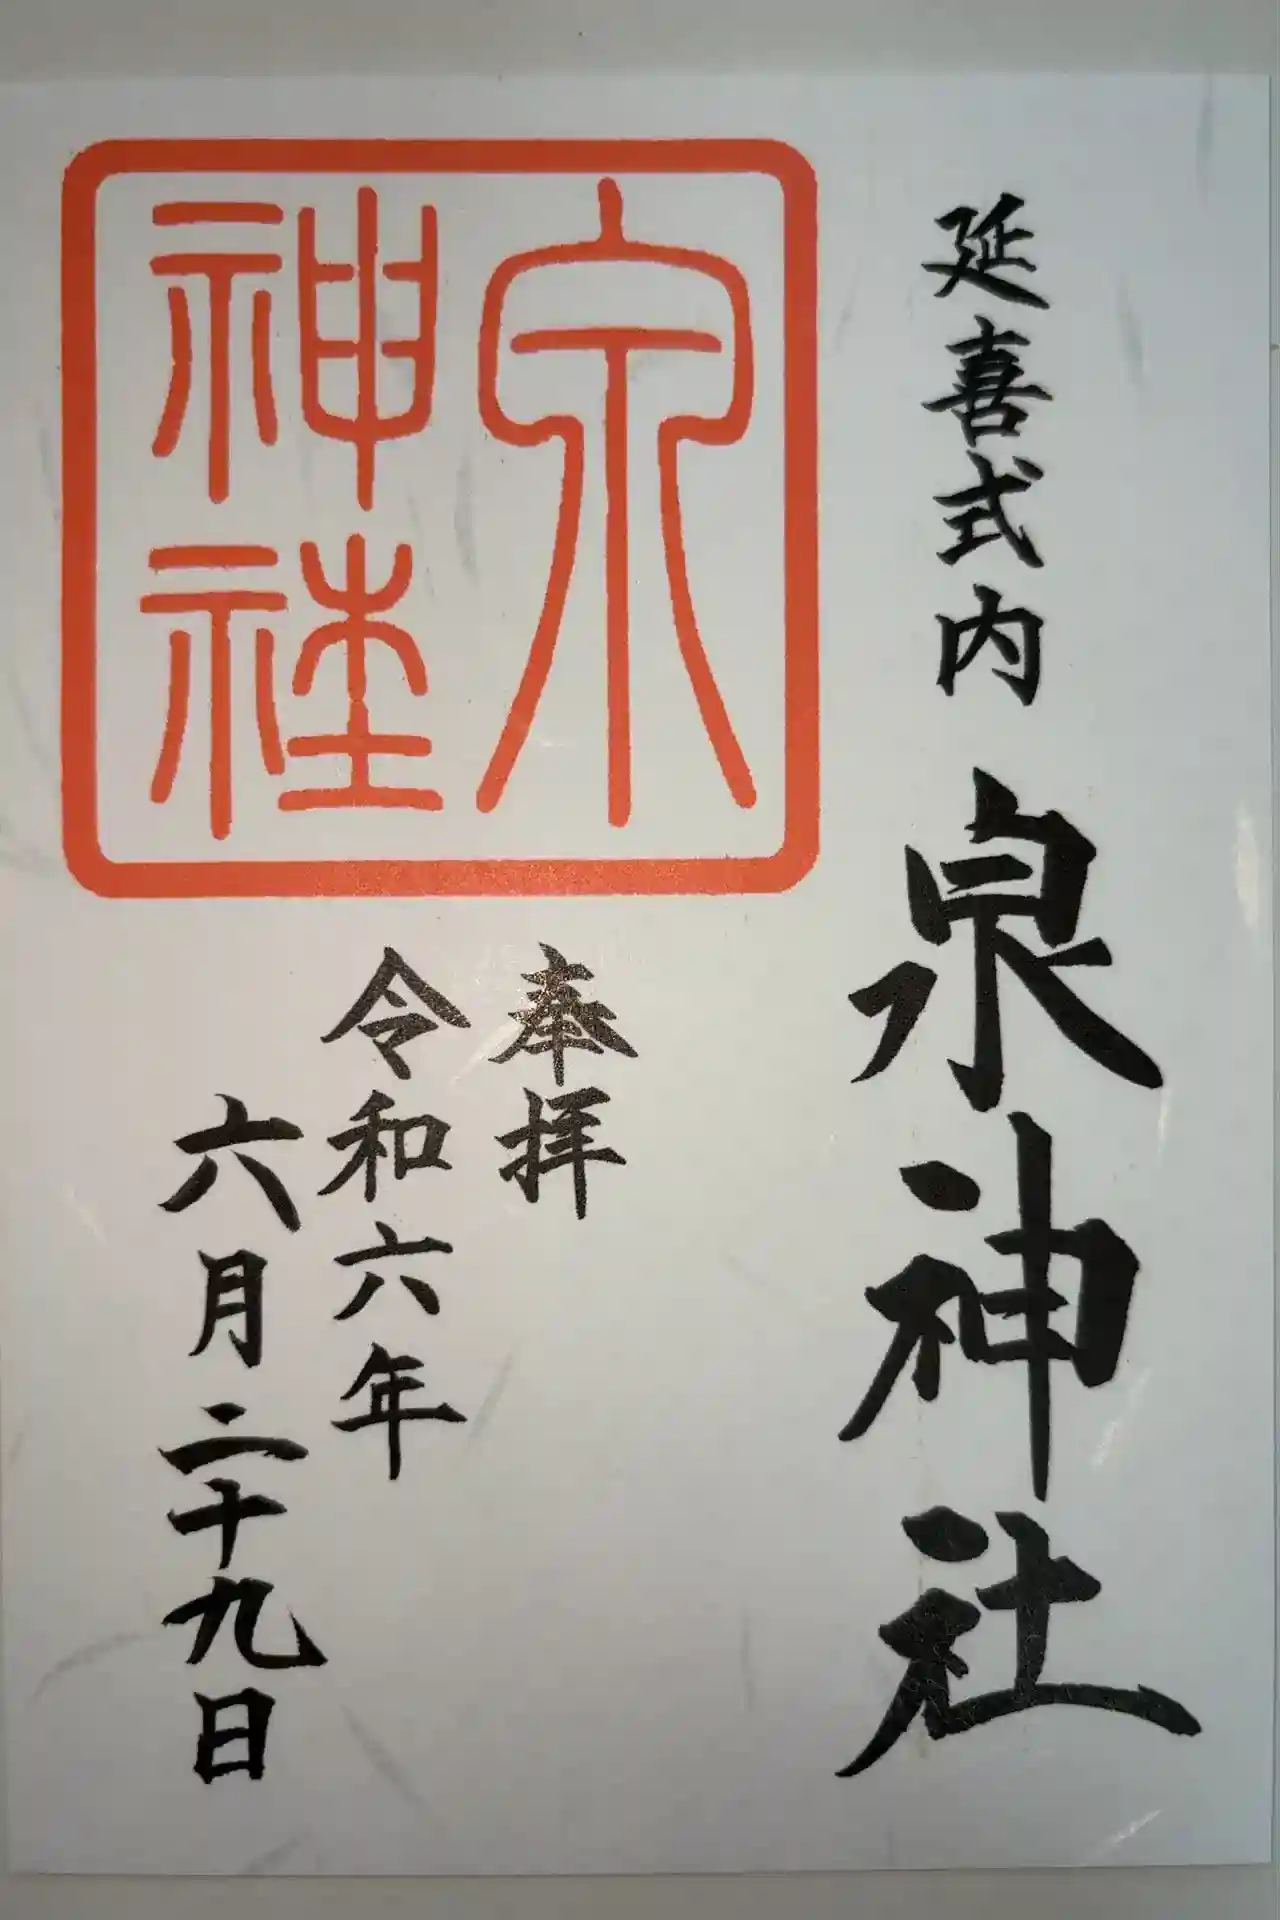 延喜式内 泉神社
泉
神社
奉拝
令和六年
六月二十九日